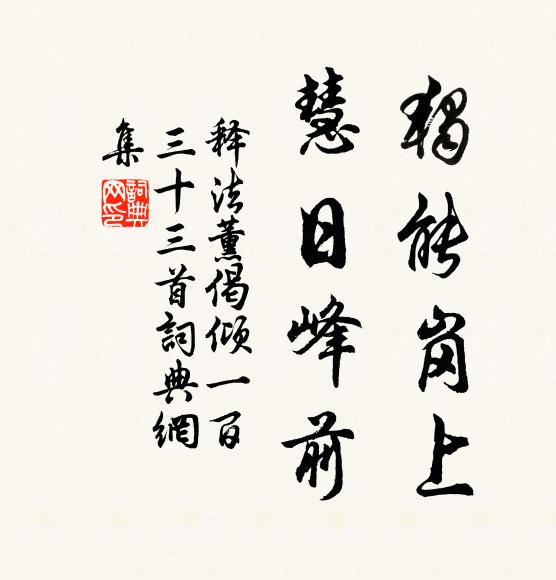 獨能岗上
慧日峰前
释法薰偈倾一百
三十三首詞典網
集
詞典
网印